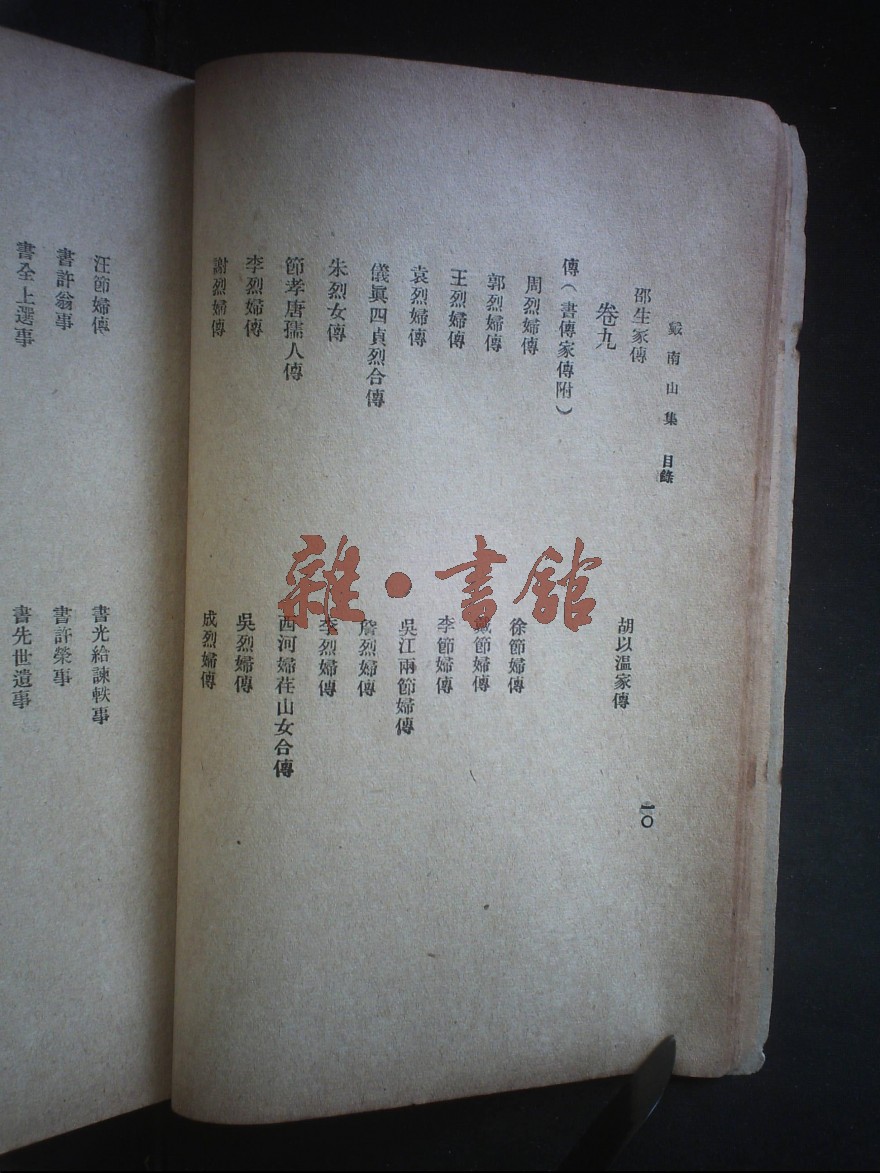 戴南山集　目錄
一〇
邵生家傳
胡以溫家傳
卷九
傳（書傳家傳附）
周烈婦傳
徐節婦傳
郭烈婦傳
節婦傳
王烈婦傳
李節婦傳
袁烈婦傳
吳江兩節婦傳
儀眞四貞烈合傳
詹烈婦傳
朱烈女傳
李烈婦傳
節孝唐孺人傳
西河婦荏山女合傳
李烈婦傳
吳烈婦傳
謝烈婦傳
成烈婦傳
汪節婦傳
書光給諫軼事
書許翁事
書許榮事
書全上選事
書先世遺事
雜·書館